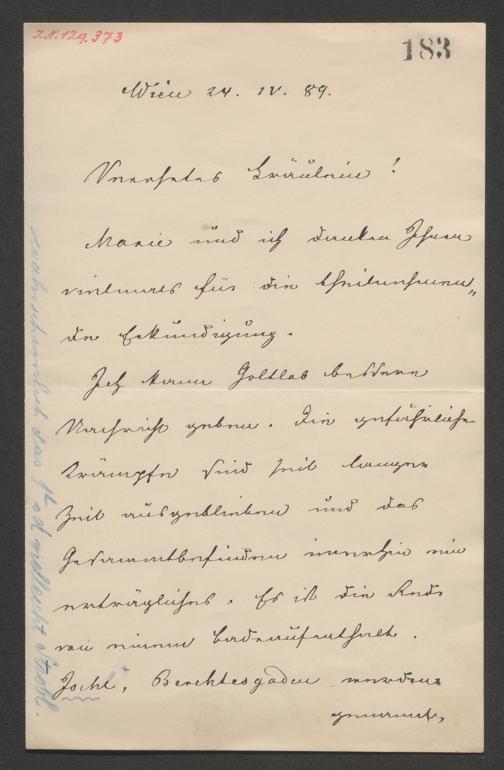 I.N. 129.373
183
Wien 24. IV. 89.
Verehrtes Fräulein!
Marie und ich danken Ihnen
vielmals für die theilnehmen„
de Erkundigung.
Ich kann Gottlob bessere
Nachricht geben. Die gefährlichen
Krämpfe sind seit langer
Zeit ausgeblieben und das
Gesammtbefinden immerhin ein
erträgliches. Es ist die Rede
von einem Badeaufenthalt.
Ischl, Berchtesgaden werden
genannt,
wahrscheinlich das vielleicht Strobl.